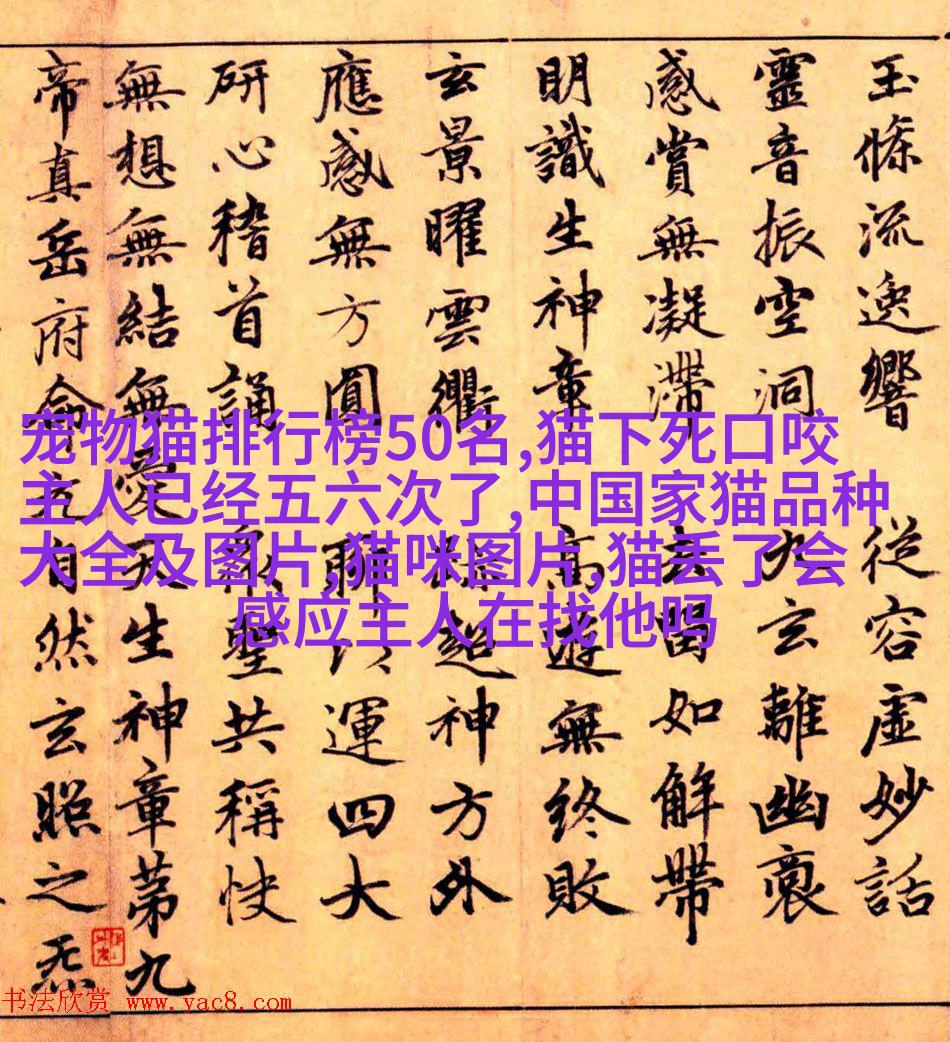 玉條流逸響 從容虛妙話
靈音振空洞 九玄離幽
感賞無凝滯 去留如解帶
明識生神章 高遊無終敗
玄景曜雲衢 超神方外
應感無方圓 聊以運四大
研心稽首誦 眾聖共稱快
無想無結無愛天生神章第九
帝真岳府自然玄照之炁
宠物猫排行榜50名,猫下死口咬
主人已经五六次了,中国家猫品种
大全及图片,猫咪图片,猫丢了会
感应主人在找他吗
书法欣赏 www.yac8.com